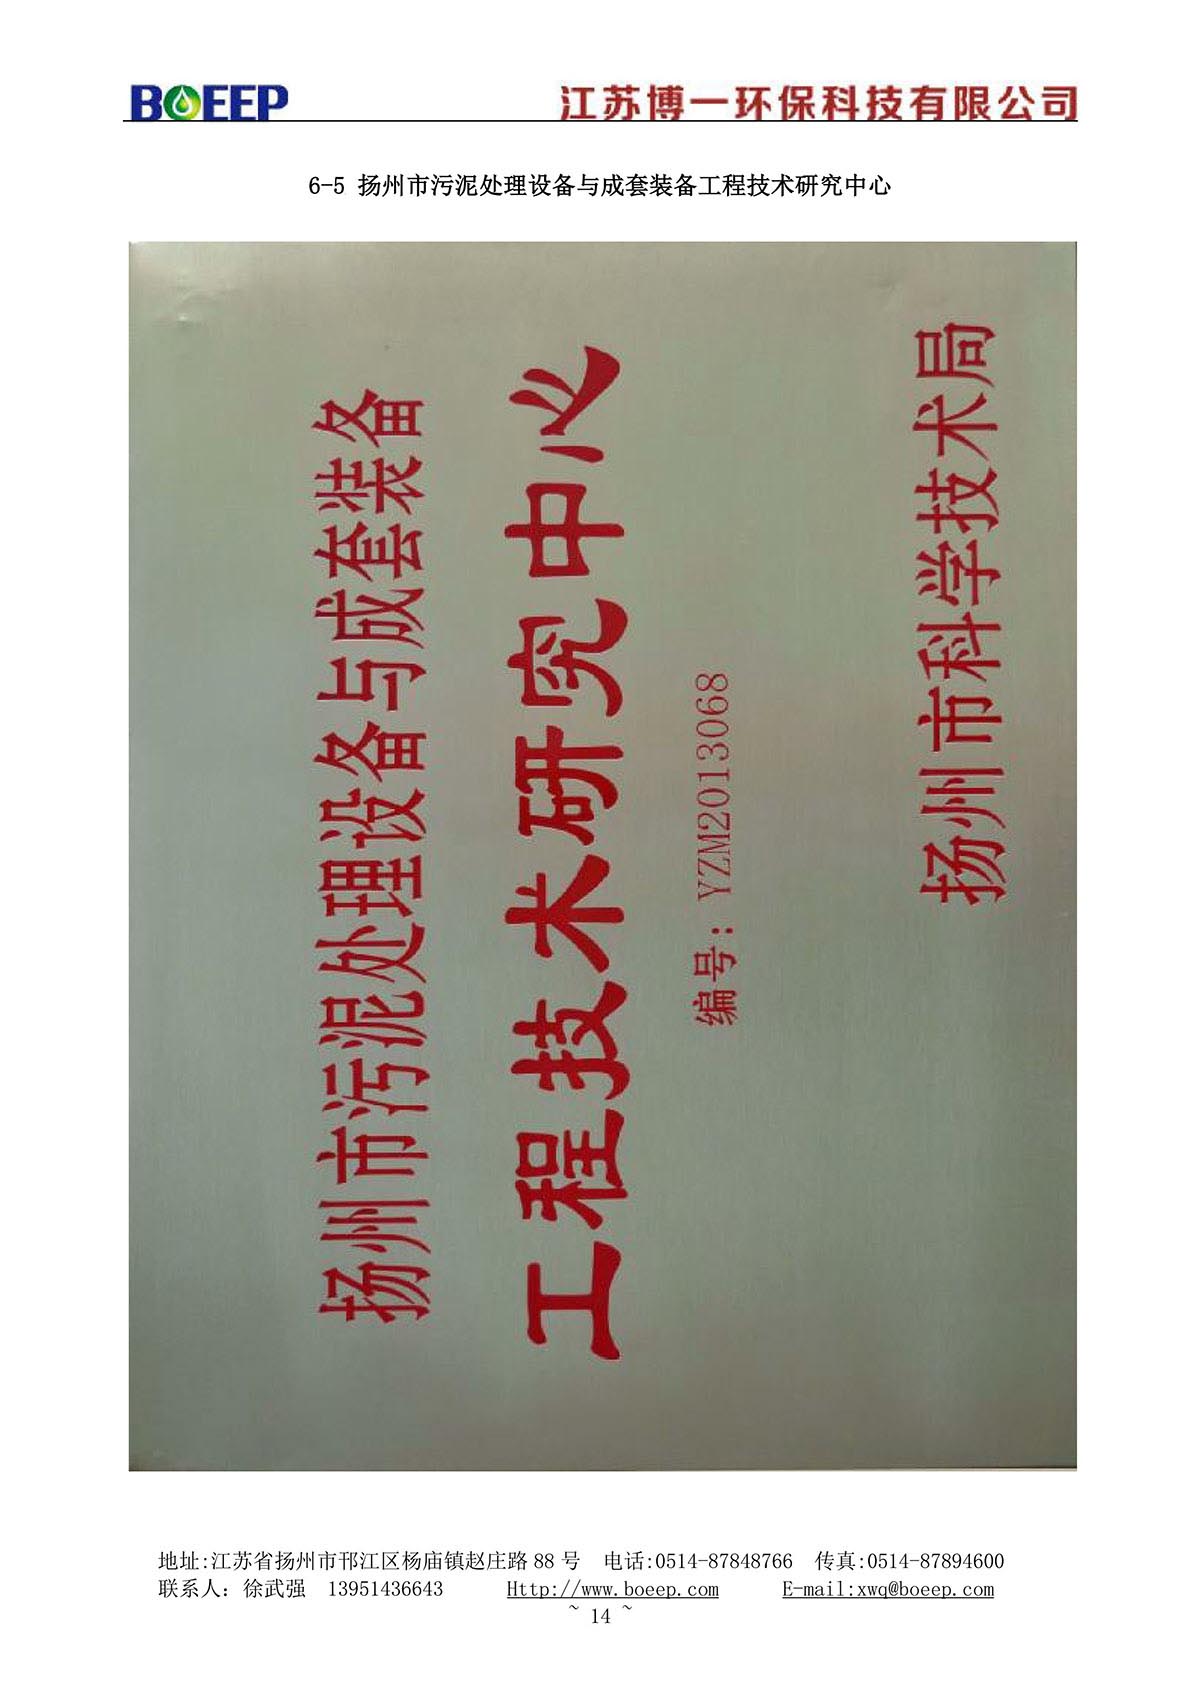 BOEEP
江苏博一环保科技有限公司
6-5 扬州市污泥处理设备与成套装备工程技术研究中心
扬州市污泥处理设备与成套装备
工程技术研究中心
编号：YZM2013068
扬州市科学技术局
地址:江苏省扬州市邗江区杨庙镇赵庄路 88 号 电话:0514-87848766 传真:0514-87894600
联系人：徐武强 13951436643 Http://www.boeep.com E-mail:xwq@boeep.com
~ 14 ~